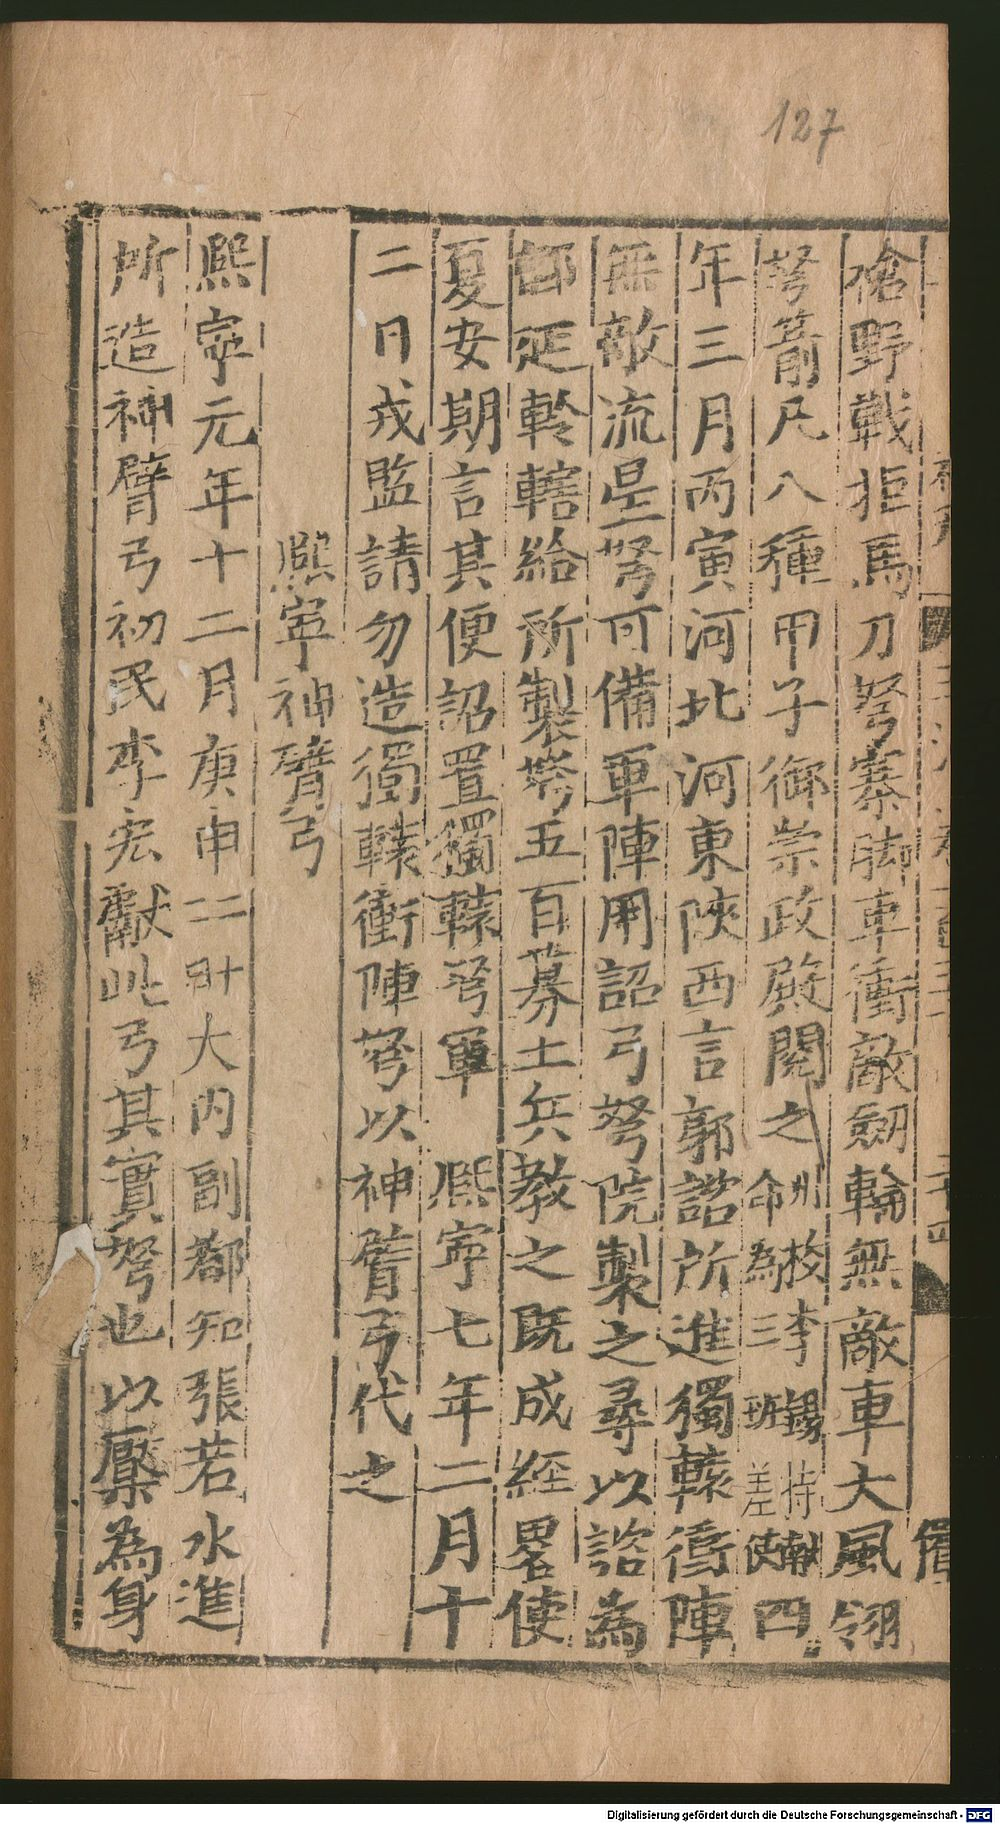 127
槍野戰拒馬刀弩寨脚車衝敵劒輪無敵車大風翎
弩箭凡八種甲子御崇政殿閱之 州校李鍚持獻 命為三班差使 四
年三月丙寅河北河東陝西言郭諮所進獨轅衝陣
無敵流星弩可備軍陣用詔弓弩院製之尋以諮為
鄜延軨轄給所製弩五百募土兵教之既成經畧使
夏安期言其便詔置獨轅弩軍 熈寧七年二月十
二日戎監請勿造獨轅衝陣弩以神臂弓代之
熈寧神臂弓
熈寧元年十二月庚申二十二日大内副都知張若水進
所造神臂弓初民李宏獻此弓其實弩也以檿為身
Digitalisierung gefördert durch die Deutsche Forschungsgemeinschaft - DFG